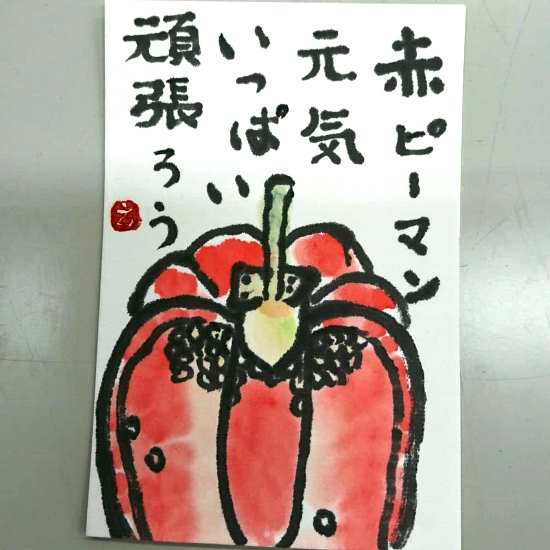 赤ピーマン
元気
いっぱい
頑張ろう